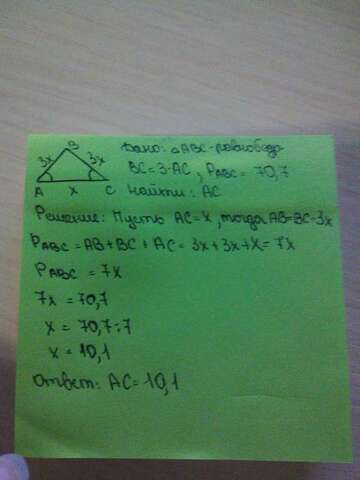 Дано: △ABC-равнобедр.
B
3x 3x
BC=3·AC, PABC= 70,7
A x C
Найти: AC
Решение: Пусть AC=x, тогда AB=BC=3x
PABC= AB+BC+AC=3x+3x+x=7x
PABC = 7x
7x = 70,7
x = 70,7:7
x = 10,1
Ответ: AC=10,1